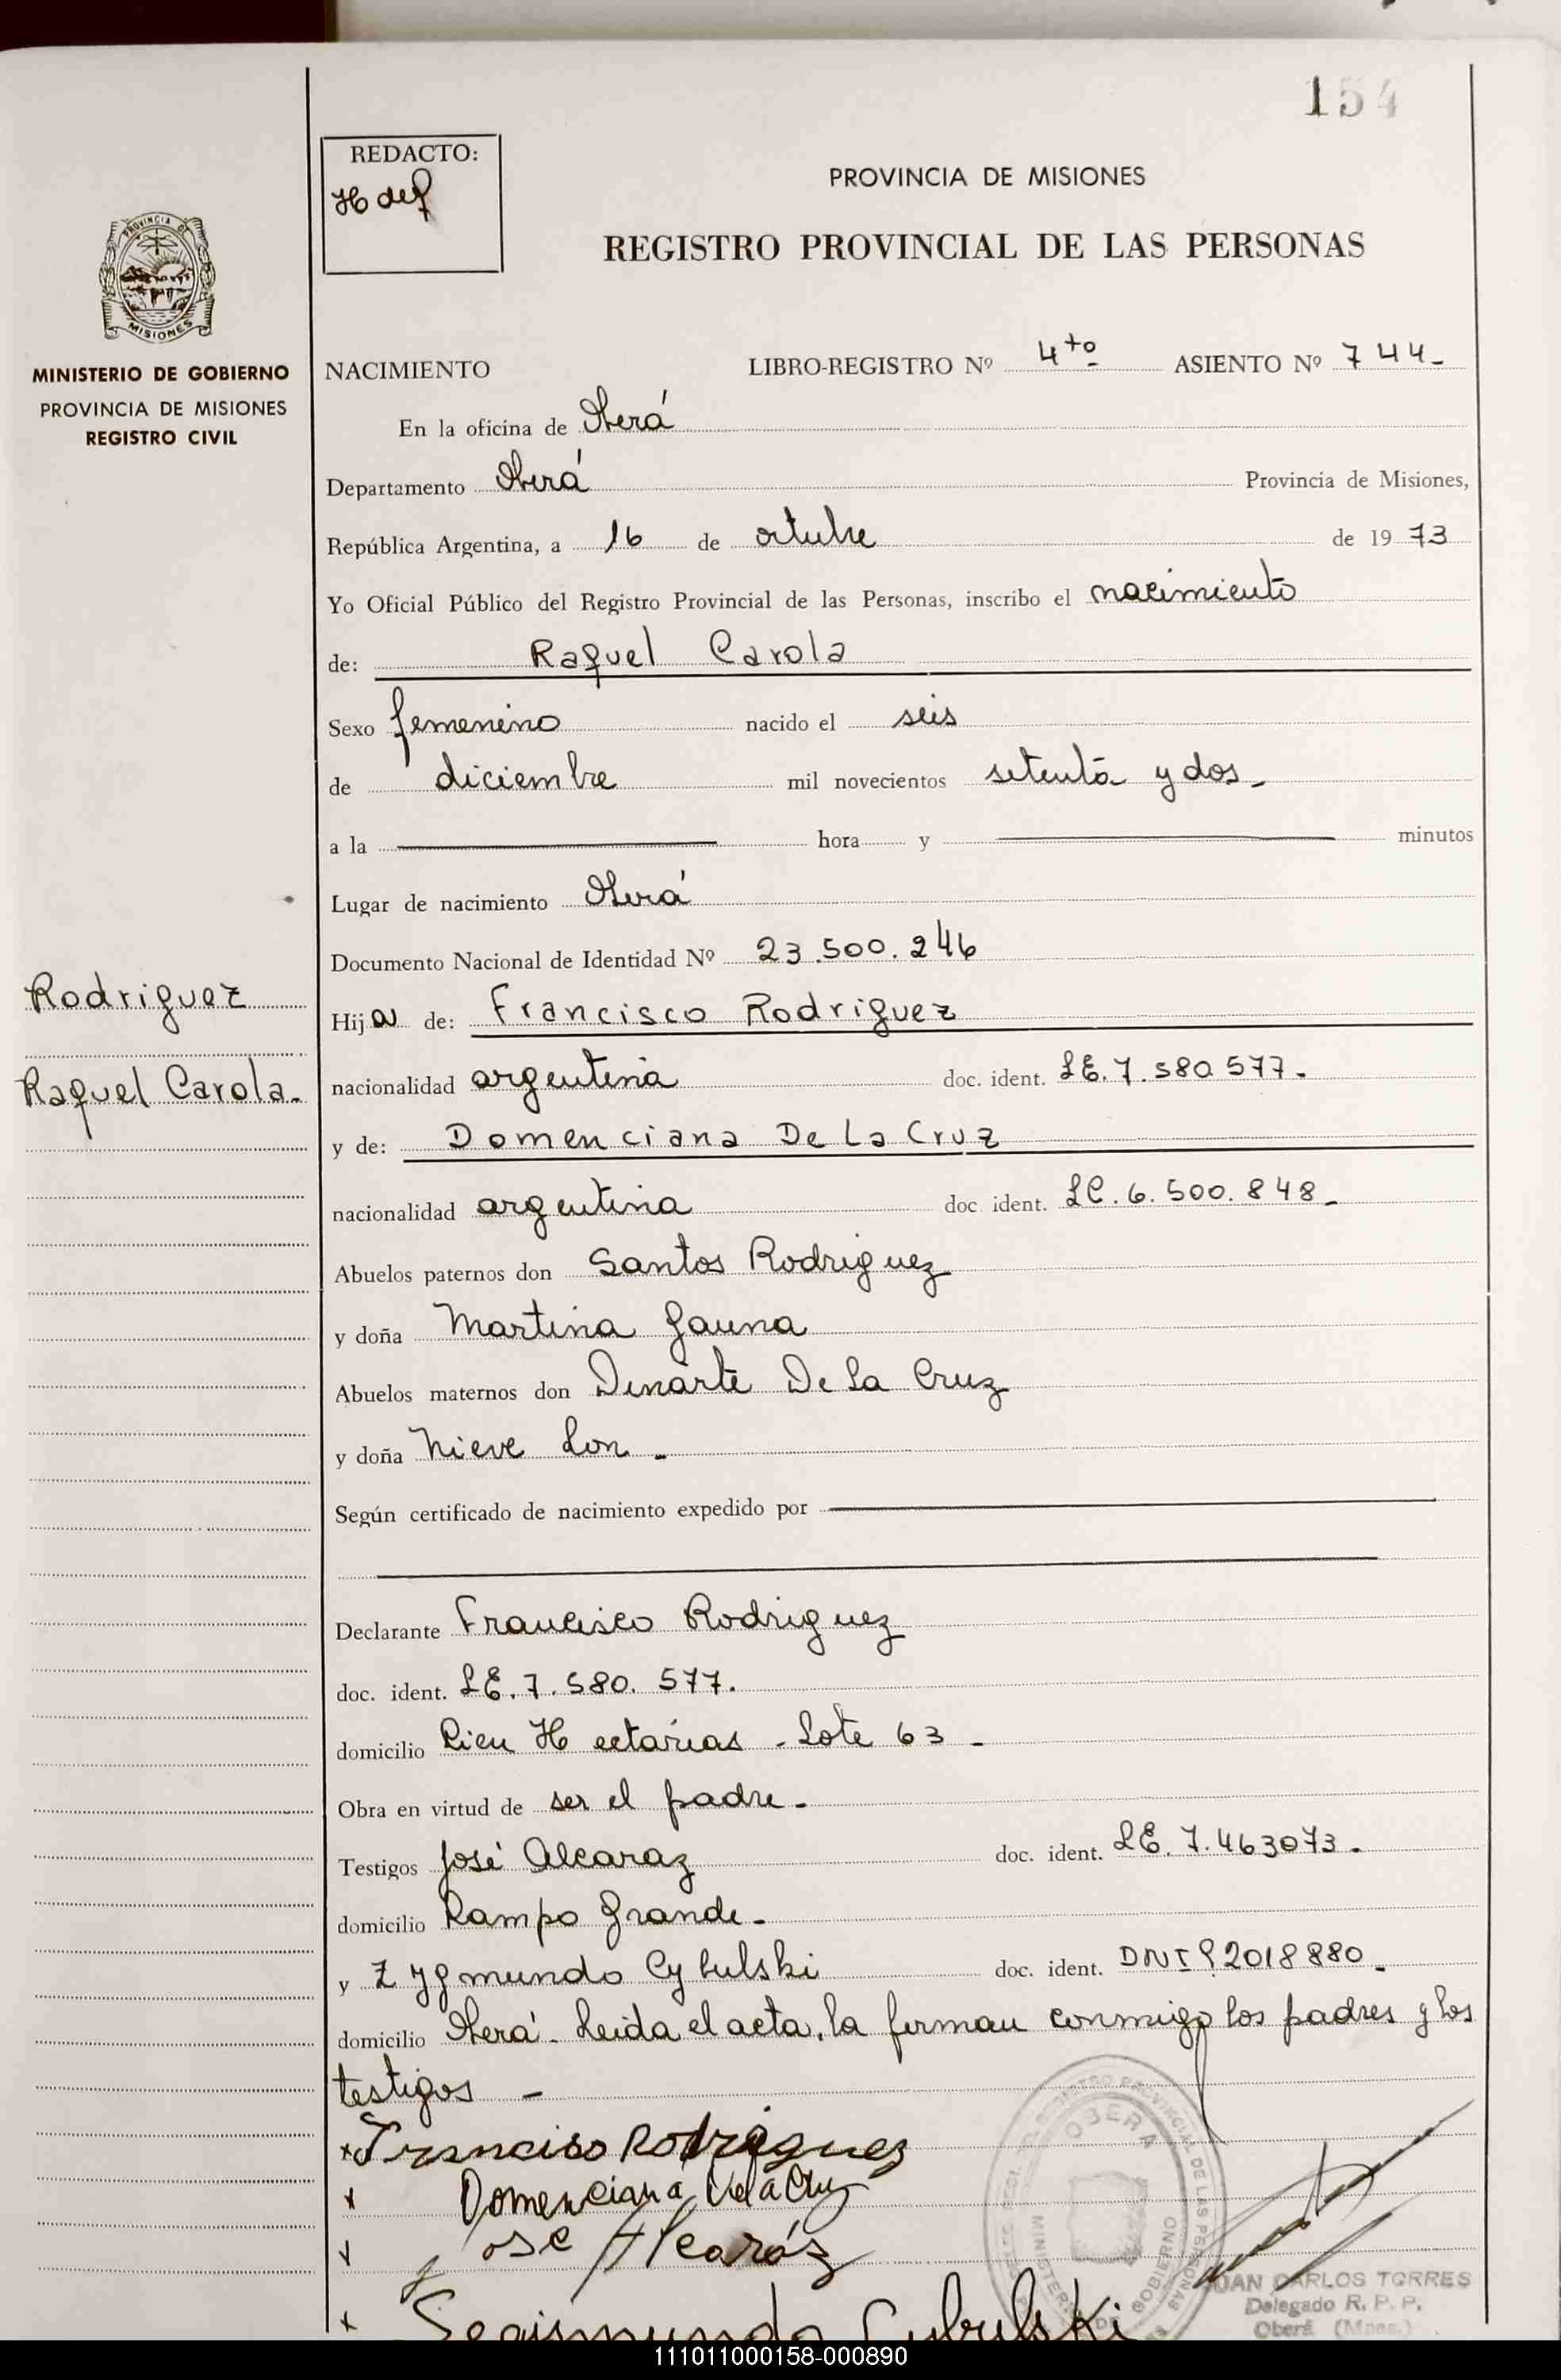 154
REDACTO:
PROVINCIA DE MISIONES
REGISTRO PROVINCIAL DE LAS PERSONAS
PROVINCIA DE
MISIONES
MINISTERIO DE GOBIERNO
PROVINCIA DE MISIONES
REGISTRO CIVIL
NACIMIENTO LIBRO-REGISTRO Nº 4to ASIENTO Nº 744-
En la oficina de Oberá
Departamento Oberá Provincia de Misiones,
República Argentina, a 16 de octubre de 1973
Yo Oficial Público del Registro Provincial de las Personas, inscribo el nacimiento
de: Raquel Carola
Sexo femenino nacido el seis
de diciembre mil novecientos setenta y dos-
a la hora y minutos
Lugar de nacimiento Oberá
Documento Nacional de Identidad Nº 23.500.246
Rodriguez
Hija de: Francisco Rodriguez
Raquel Carola.
nacionalidad argentina doc. ident. LE.7.580.577.
y de: Domenciana De La Cruz
nacionalidad argentina doc ident. LC.6.500.848-
Abuelos paternos don Santos Rodriguez
y doña Martina Gauna
Abuelos maternos don Dinarte De La Cruz
y doña Nieve Lon -
Según certificado de nacimiento expedido por
Declarante Francisco Rodriguez
doc. ident. LE.7.580.577.
domicilio Cien Hectarias - Lote 63 -
Obra en virtud de ser el padre-
Testigos José Alcaraz doc. ident. LE.7.463073.
domicilio Kampo Grande-
y Zygmundo Cybulski doc. ident. DNI 92018880-
domicilio Oberá- Leida el acta, la firman conmigo los padres y los
testigos -
Francisco Rodriguez
Domenciana De la Cruz
Jose Alcaráz
Segismundo Cybulski
OBERA
MINISTERIO DE GOBIERNO
JUAN CARLOS TORRES
Delegado R. P. P.
Oberá (Mnes.)
111011000158-000890